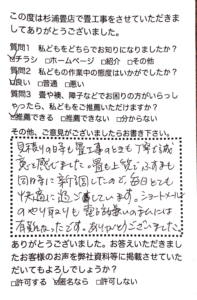 この度は杉浦畳店で畳工事をさせていただきま
してありがとうございました。
質問1 私どもをどちらでお知りになりましたか？
☑チラシ □ホームページ □紹介 □その他
質問2 私どもの作業中の態度はいかがでしたか？
☑良い □普通 □悪い
質問3 畳や襖、障子などでお困りの方がいらっし
ゃったら、私どもをご推薦いただけますか？
☑推薦できる □推薦できない □分からない
その他、ご意見がございましたらお書き下さい。
見積りの時も畳工事のときも丁寧な誠
実さを感じました。畳も上質で、ふすまも
同時に新調したので、毎日とても
快適に過ごしています。ショートメール
のやり取りも電話が苦手な私には
有難かったです。ありがとうございました。
ありがとうございました。お答えいただきまし
たお客様のお声を弊社資料等に掲載させていた
だいてもよろしでしょうか？
□許可する ☑匿名なら □許可しない